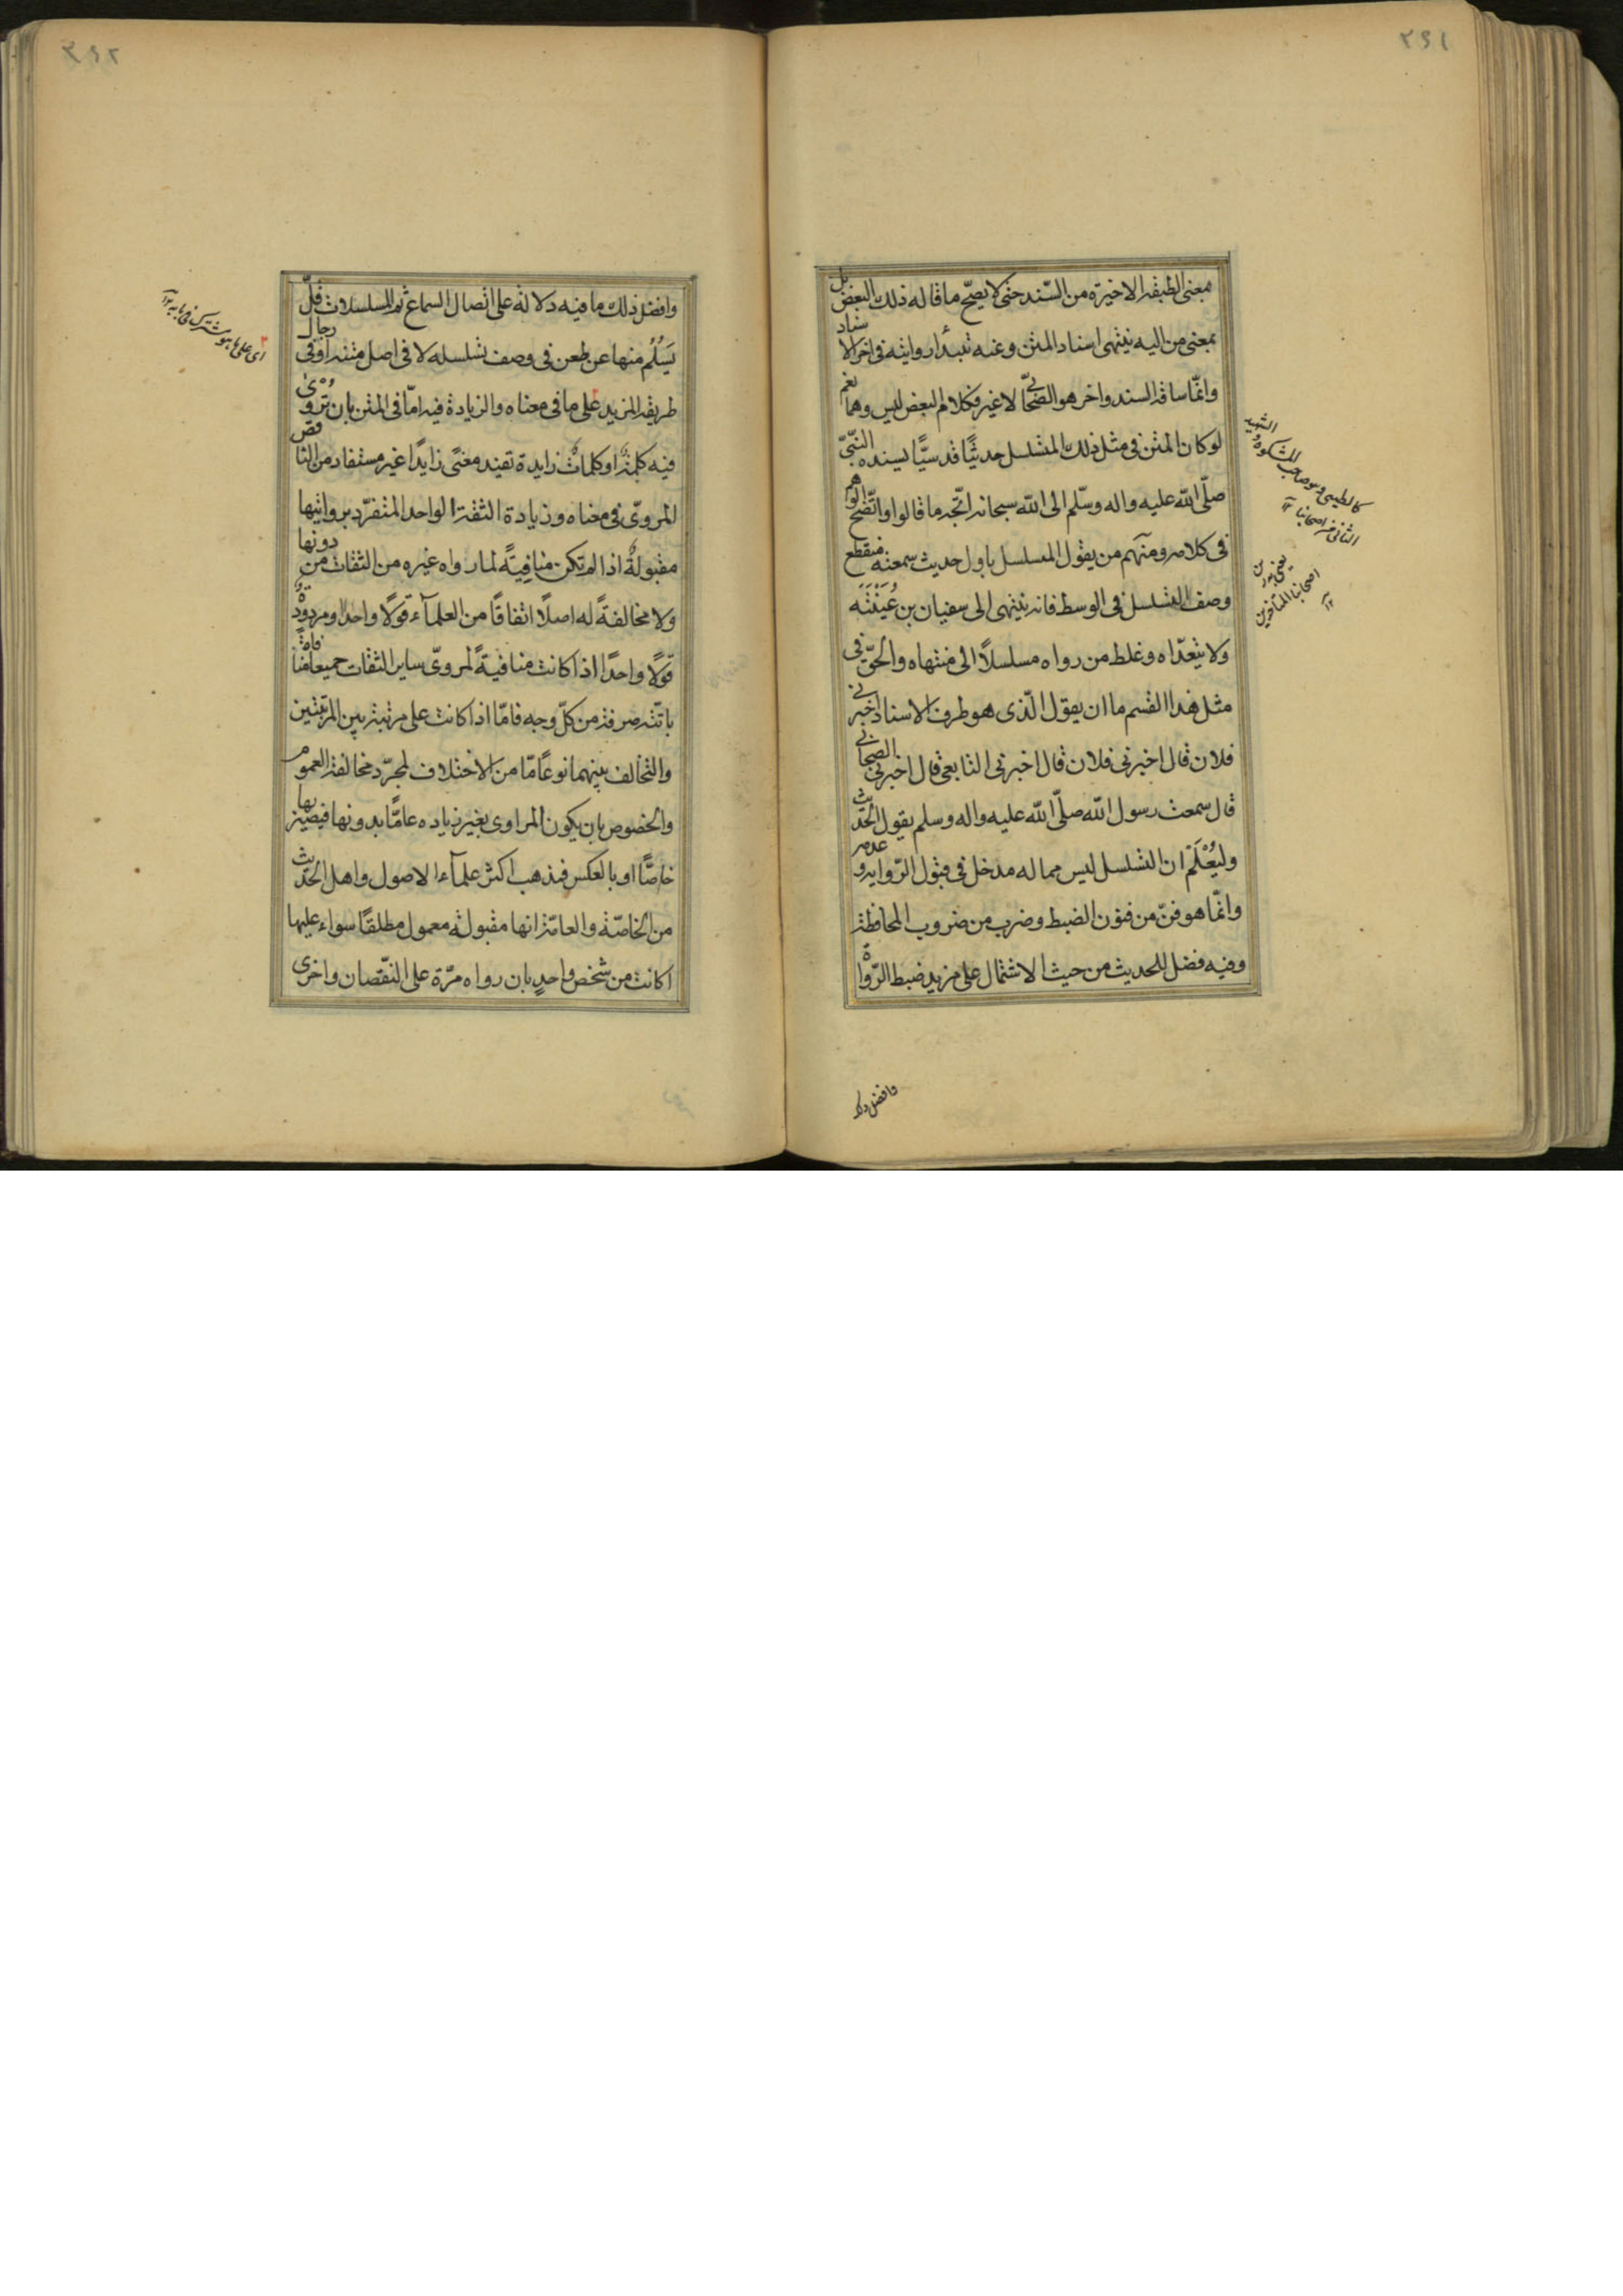 ٢٩١
معنى الطبقة الاخيرة من السند حتى لا يصحّ ما قاله ذلك البعض بل
بمعنى من اليه ينتهى اسناد المتن وعنه تبدأ روايته فى اخر الاسناد
وانّما ساقة السند واخره هو الصّحابىّ لا غير فكلام البعض ليس وهما نعم
لو كان المتن فى مثل ذلك المتسلسل حديثًا قدسيًّا يسنده النّبىّ
صلّى الله عليه واله وسلّم الى الله سبحانه اتّجه ما قالوا واتّضح الوهم
فى كلامه ومنهم من يقول المسلسل باول حديث سمعته منقطع
وصف التسلسل فى الوسط فانه ينتهى الى سفيان بن عُيَيْنَة
ولا يتعدّاه وغلط من رواه مسلسلًا الى منتهاه والحقّ فى
مثل هذا القسم ما ان يقول الّذى هو طرف الاسناد اخبرنى
فلان قال اخبرنى فلان قال اخبرنى التابعى قال اخبرنى الصحابى
قال سمعت رسول الله صلّى الله عليه واله وسلم يقول الحديث
وليُعْلَمْ ان التسلسل ليس مما له مدخل فى قبول الرّواية وعدمه
وانّما هو فنّ من فنون الضبط وضرب من ضروب المحافظة
وفيه فضل للحديث من حيث الاشتمال على مزيد ضبط الرّواة
كالطيبى وصاحب المشكوة والشهيد
الثانى من اصحابنا ١٢
اصحابنا المتأخرين
وافضل ذلك
٢٩٢
وافضل ذلك ما فيه دلالة على اتصال السماع ثم المسلسلات قلّ
يَسْلَم منها عن طعن فى وصف تسلسله لا فى اصل متنه او فى رجال
طريقه المزيد على ما فى معناه والزيادة فيه امّا فى المتن بان تروى
فيه كلمةٌ او كلماتٌ زايدة تفيد معنًى زايدًا غير مستفاد من الناقص
المروىّ فى معناه وزيادة الثقة الواحد المتفرّد بروايتها
مقبولةٌ اذا لم تكن منافيةً لما رواه غيره من الثقات من دونها
ولا مخالفةً له اصلًا اتفاقًا من العلمآء قولًا واحدًا ومردودةٌ
قولًا واحدًا اذا كانت منافيةً لمروىّ ساير الثقات جميعا منافاة
باتّة صرفة من كلّ وجه فامّا اذا كانت على مرتبة بين المرتبتين
والتخالف بينهما نوعًا مّا من الاختلاف لمجرّد مخالفة العموم
والخصوص بان يكون المراوى بغير زياده عامًّا بدونها فيصيّر بها
خاصًّا او بالعكس فذهب اكثر علمآء الاصول واهل الحديث
من الخاصّة والعامّة انها مقبولة معمول مطلقًا سواء عليها
اكانت من شخص واحدٍ بان رواه مرّة على النقصان واخرى
اى على ما هو مشترك فى ما به ١٢